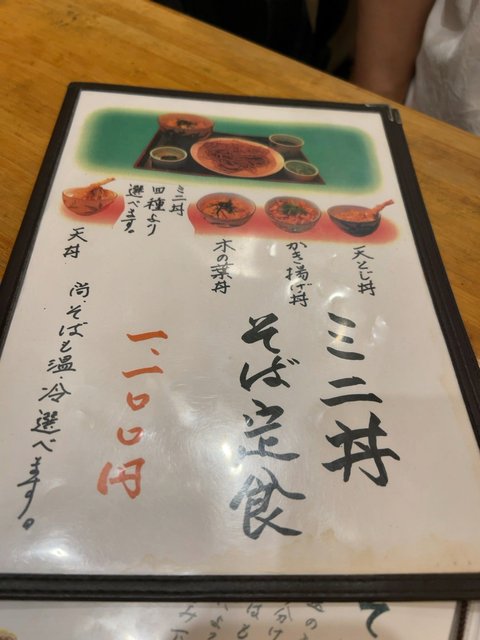 天とじ丼
かき揚げ丼
木の葉丼
ミニ丼
四種より
選べます。
天丼
ミニ丼
そば定食
一、一〇〇円
尚・そばも温・冷選べます。